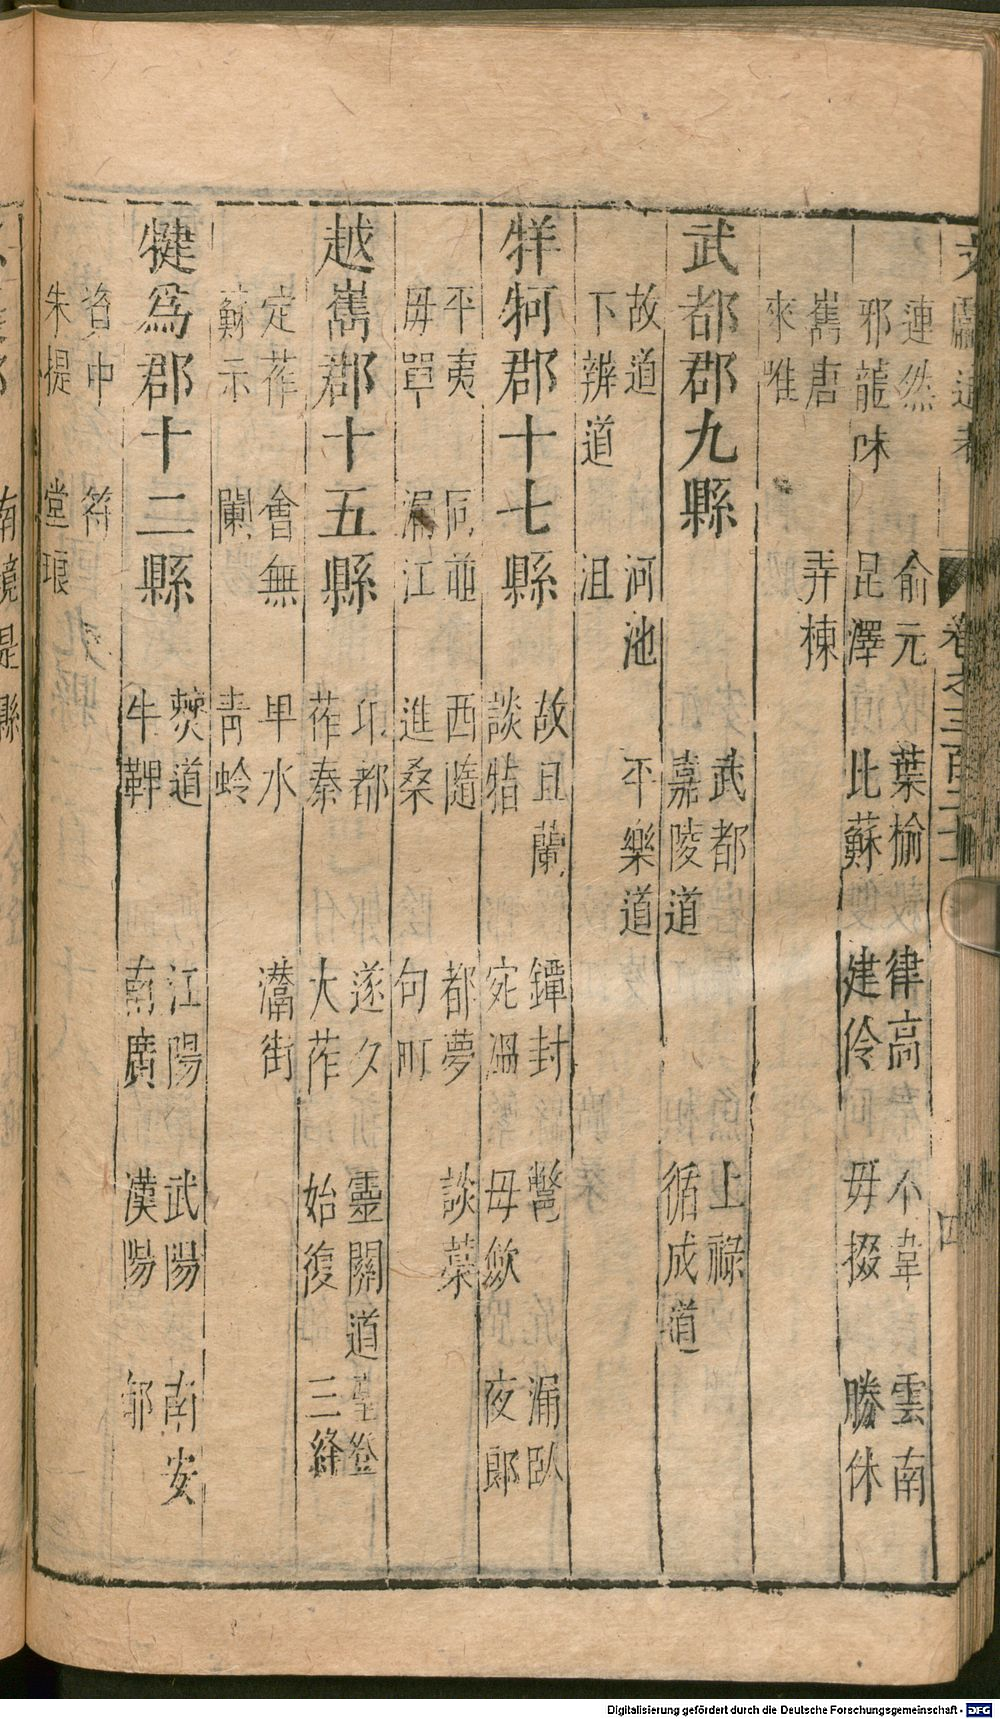 文獻通考 卷之三百二十 四
連然 俞元 葉榆 律高 不韋 雲南
邪龍味 昆澤 比蘇 建伶 毋掇 勝休
嶲唐 弄棟
來唯
武都郡九縣 武都 上祿
嘉陵道 循成道
故道 河池 平樂道
下辨道 沮
牂牁郡十七縣 故且蘭 鐔封 鱉 漏臥
談指 宛溫 毋斂 夜郎
平夷 同並 西隨 都夢 談菜
毋單 漏江 進桑 句町
越嶲郡十五縣 邛都 遂久 靈關道 臺登
莋秦 大莋 始復 三絳
定莋 會無 卑水 灊街
蘇示 闌 青蛉
犍爲郡十二縣 僰道 江陽 武陽 南安
牛鞞 南廣 漢陽 郁
資中 符
朱提 堂琅
Digitalisierung gefördert durch die Deutsche Forschungsgemeinschaft - DFG